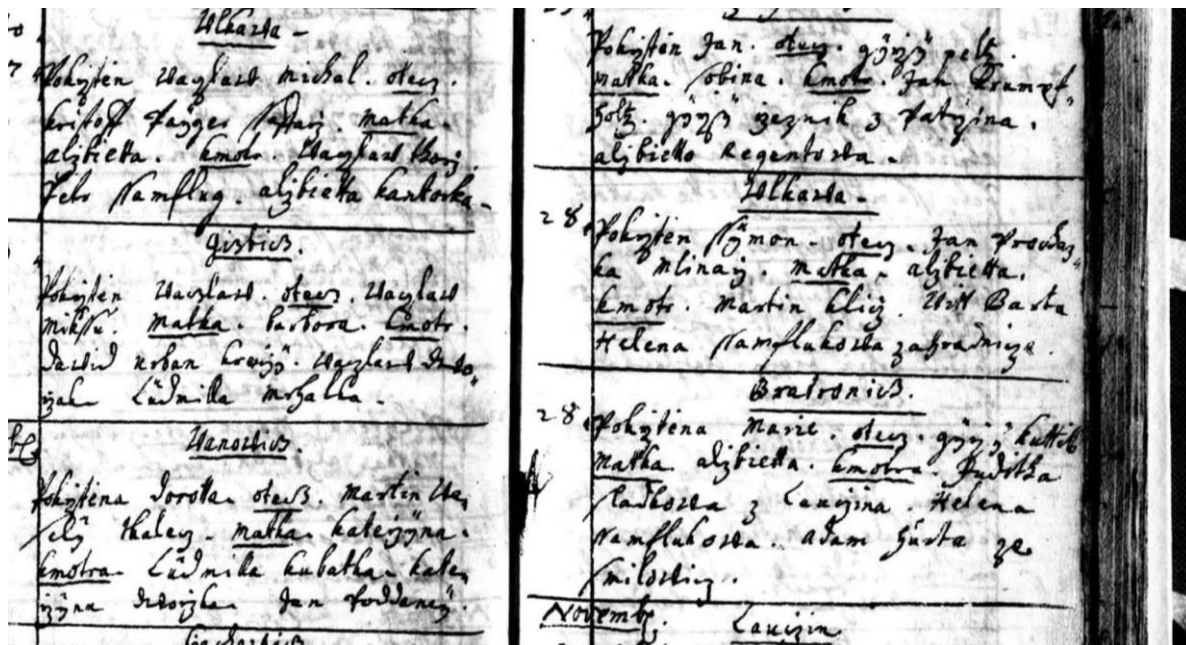 Wlkawa
Pokrztěn Waczlaw Michal. otecz.
kristoff matka.
alzbietta. kmotr. Waczlaw
Petr Namflug. alzbietta kantorka
Gistbicz.
Pokrztěn Waczlaw. otecz. Waczlaw
Mikssů. Matka. barbora. kmotr.
Dawid urban Waczlaw
Lüdmilla
Wanowicz.
Pokrztěna Dorotta. otecz. Martin We,
selÿ tkalecz. matka. katerzÿna.
kmotra. Lüdmila kubatka. kate,
rzÿna dworzka. Jan Poddanÿ.
Pokrztěn Jan. otecz. gÿrzÿ peltz.
matka. sobina. kmotr. Jan Krumpf
holtz. gÿrzÿ rzeznik z
alzbietta Regentowa.
Wlkawa.
28. Pokrztěn Ssÿmon. otecz. Jan Prochaz
ka Mlinarz. Matka. alzbietta.
kmotr. Martin Klicz. Witt Barta
Helena Namflukowa zahradnicze
Bratronicz.
28. Pokrztěna Marie. otecz. gÿrzÿ
Matka alzbietta. kmotra. Juditka
sladkowa z Lauczina. Helena
Namflukowa. adam hürta ze
smilowicz.
Novembr. Lauczin.